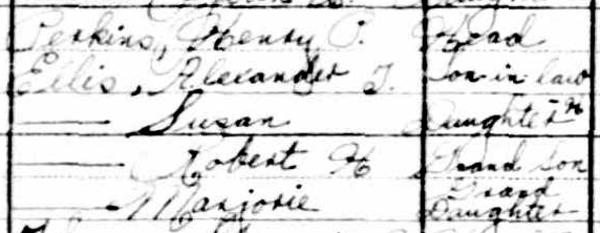 Perkins, Henry P. Head
Ellis, Alexander T. Son in law
—— Susan Daughter
—— Robert H Grand Son
—— Marjorie Grand Daughter